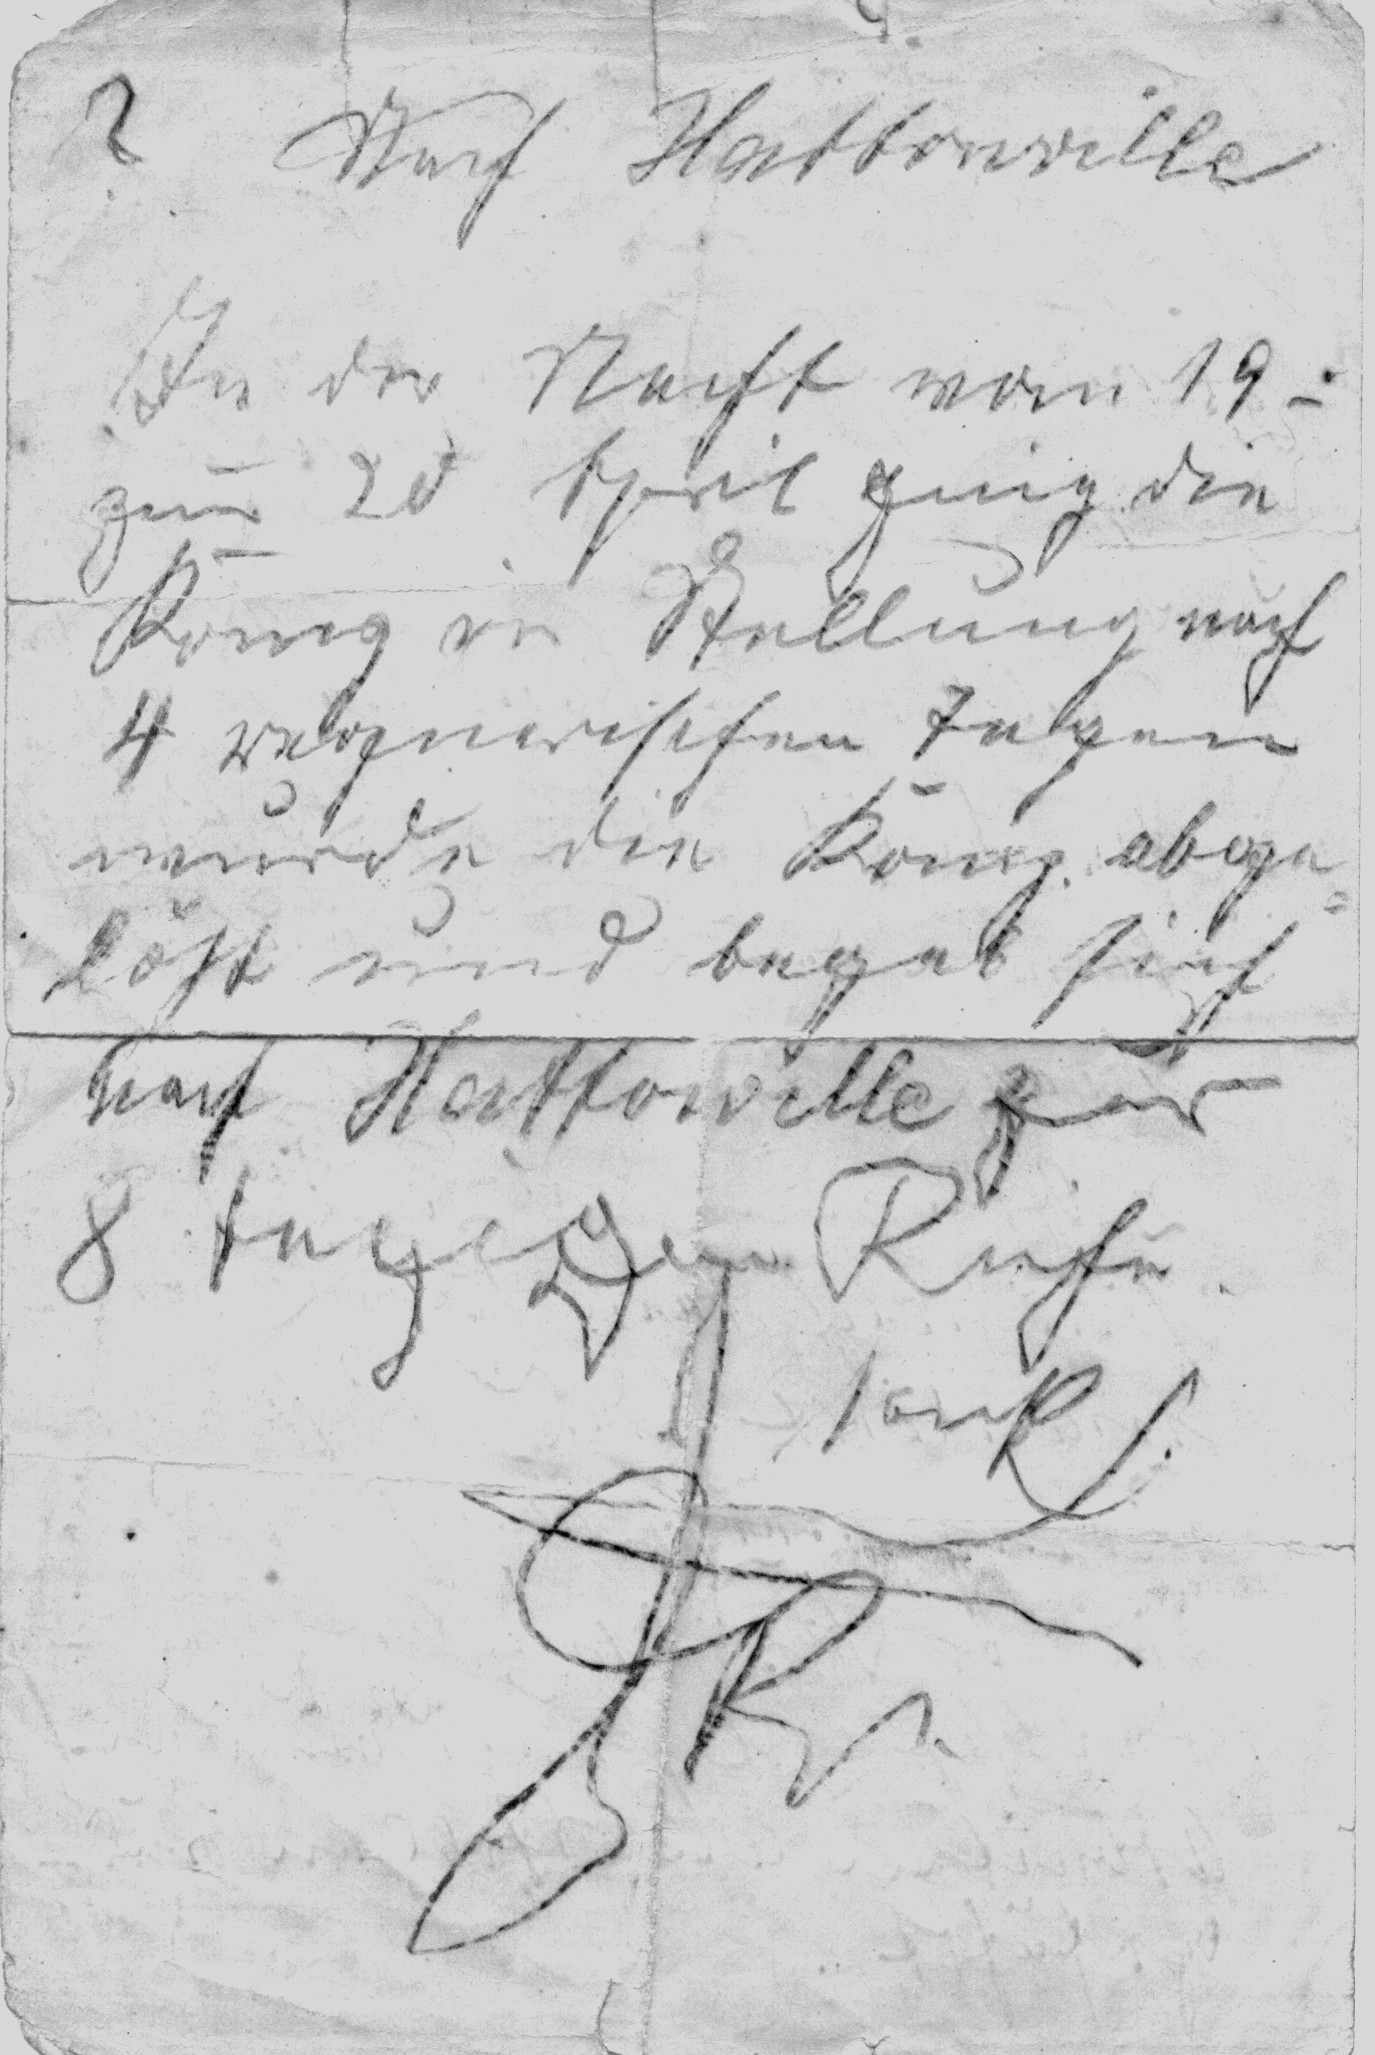 ? Nach Hattonville
In der Nacht vom 19.
zum 20 April ging die
Komg in Stellung nach
4 regnerischen Tagen
wurde die Komg. abge=
löst und begab sich
nach Hattonville zur
8 tägigen Ruhe.